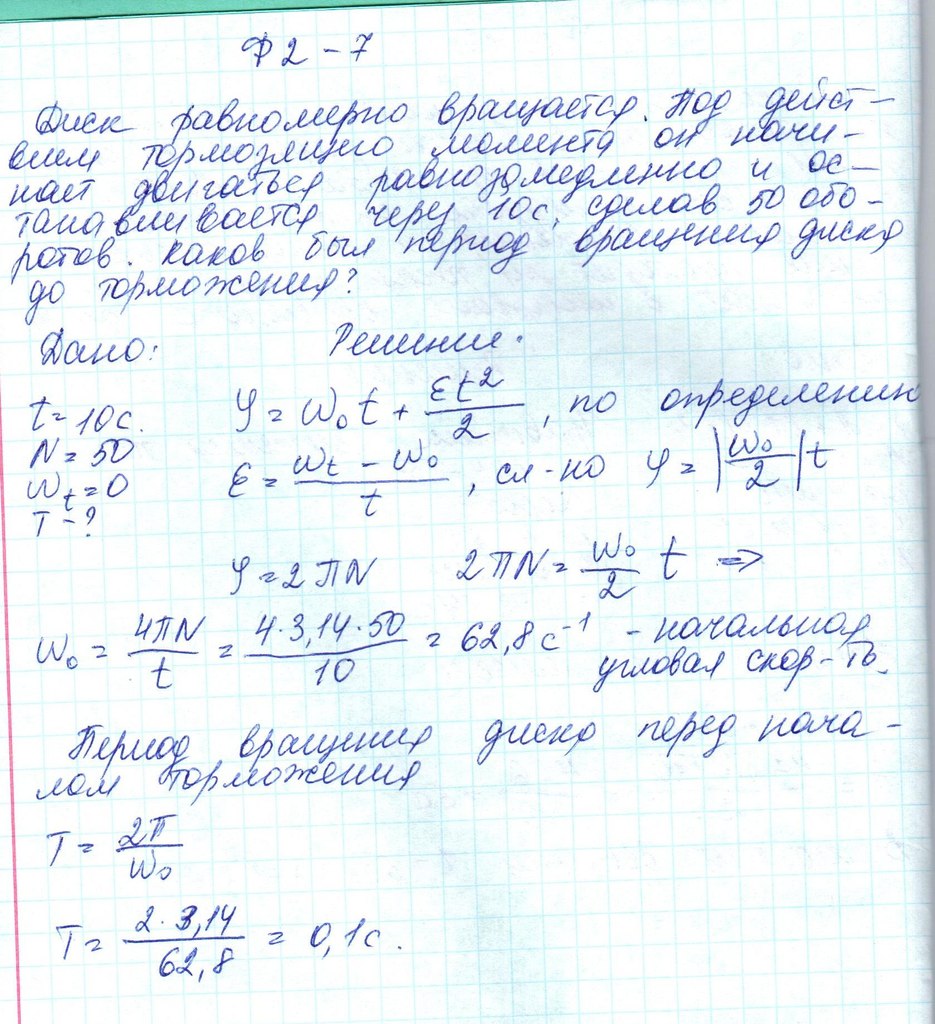 Ф2 - 7
Диск равномерно вращается. Под дейст-
вием тормозящего момента он начи-
нает двигаться равнозамедленно и ос-
танавливается через 10с, сделав 50 обо-
ротов. Каков был период вращения диска
до торможения?
Дано: Решение.
t = 10с. φ = ω₀t + εt²/2, по определению
N = 50
ωₜ = 0 ε = (ωₜ - ω₀)/t, сл-но φ = |ω₀/2|t
T - ?
φ = 2πN 2πN = ω₀/2 t =>
ω₀ = 4πN/t = 4·3,14·50/10 = 62,8 с⁻¹ - начальная
угловая скор-ть.
Период вращения диска перед нача-
лом торможения
T = 2π/ω₀
T = 2·3,14/62,8 = 0,1с.